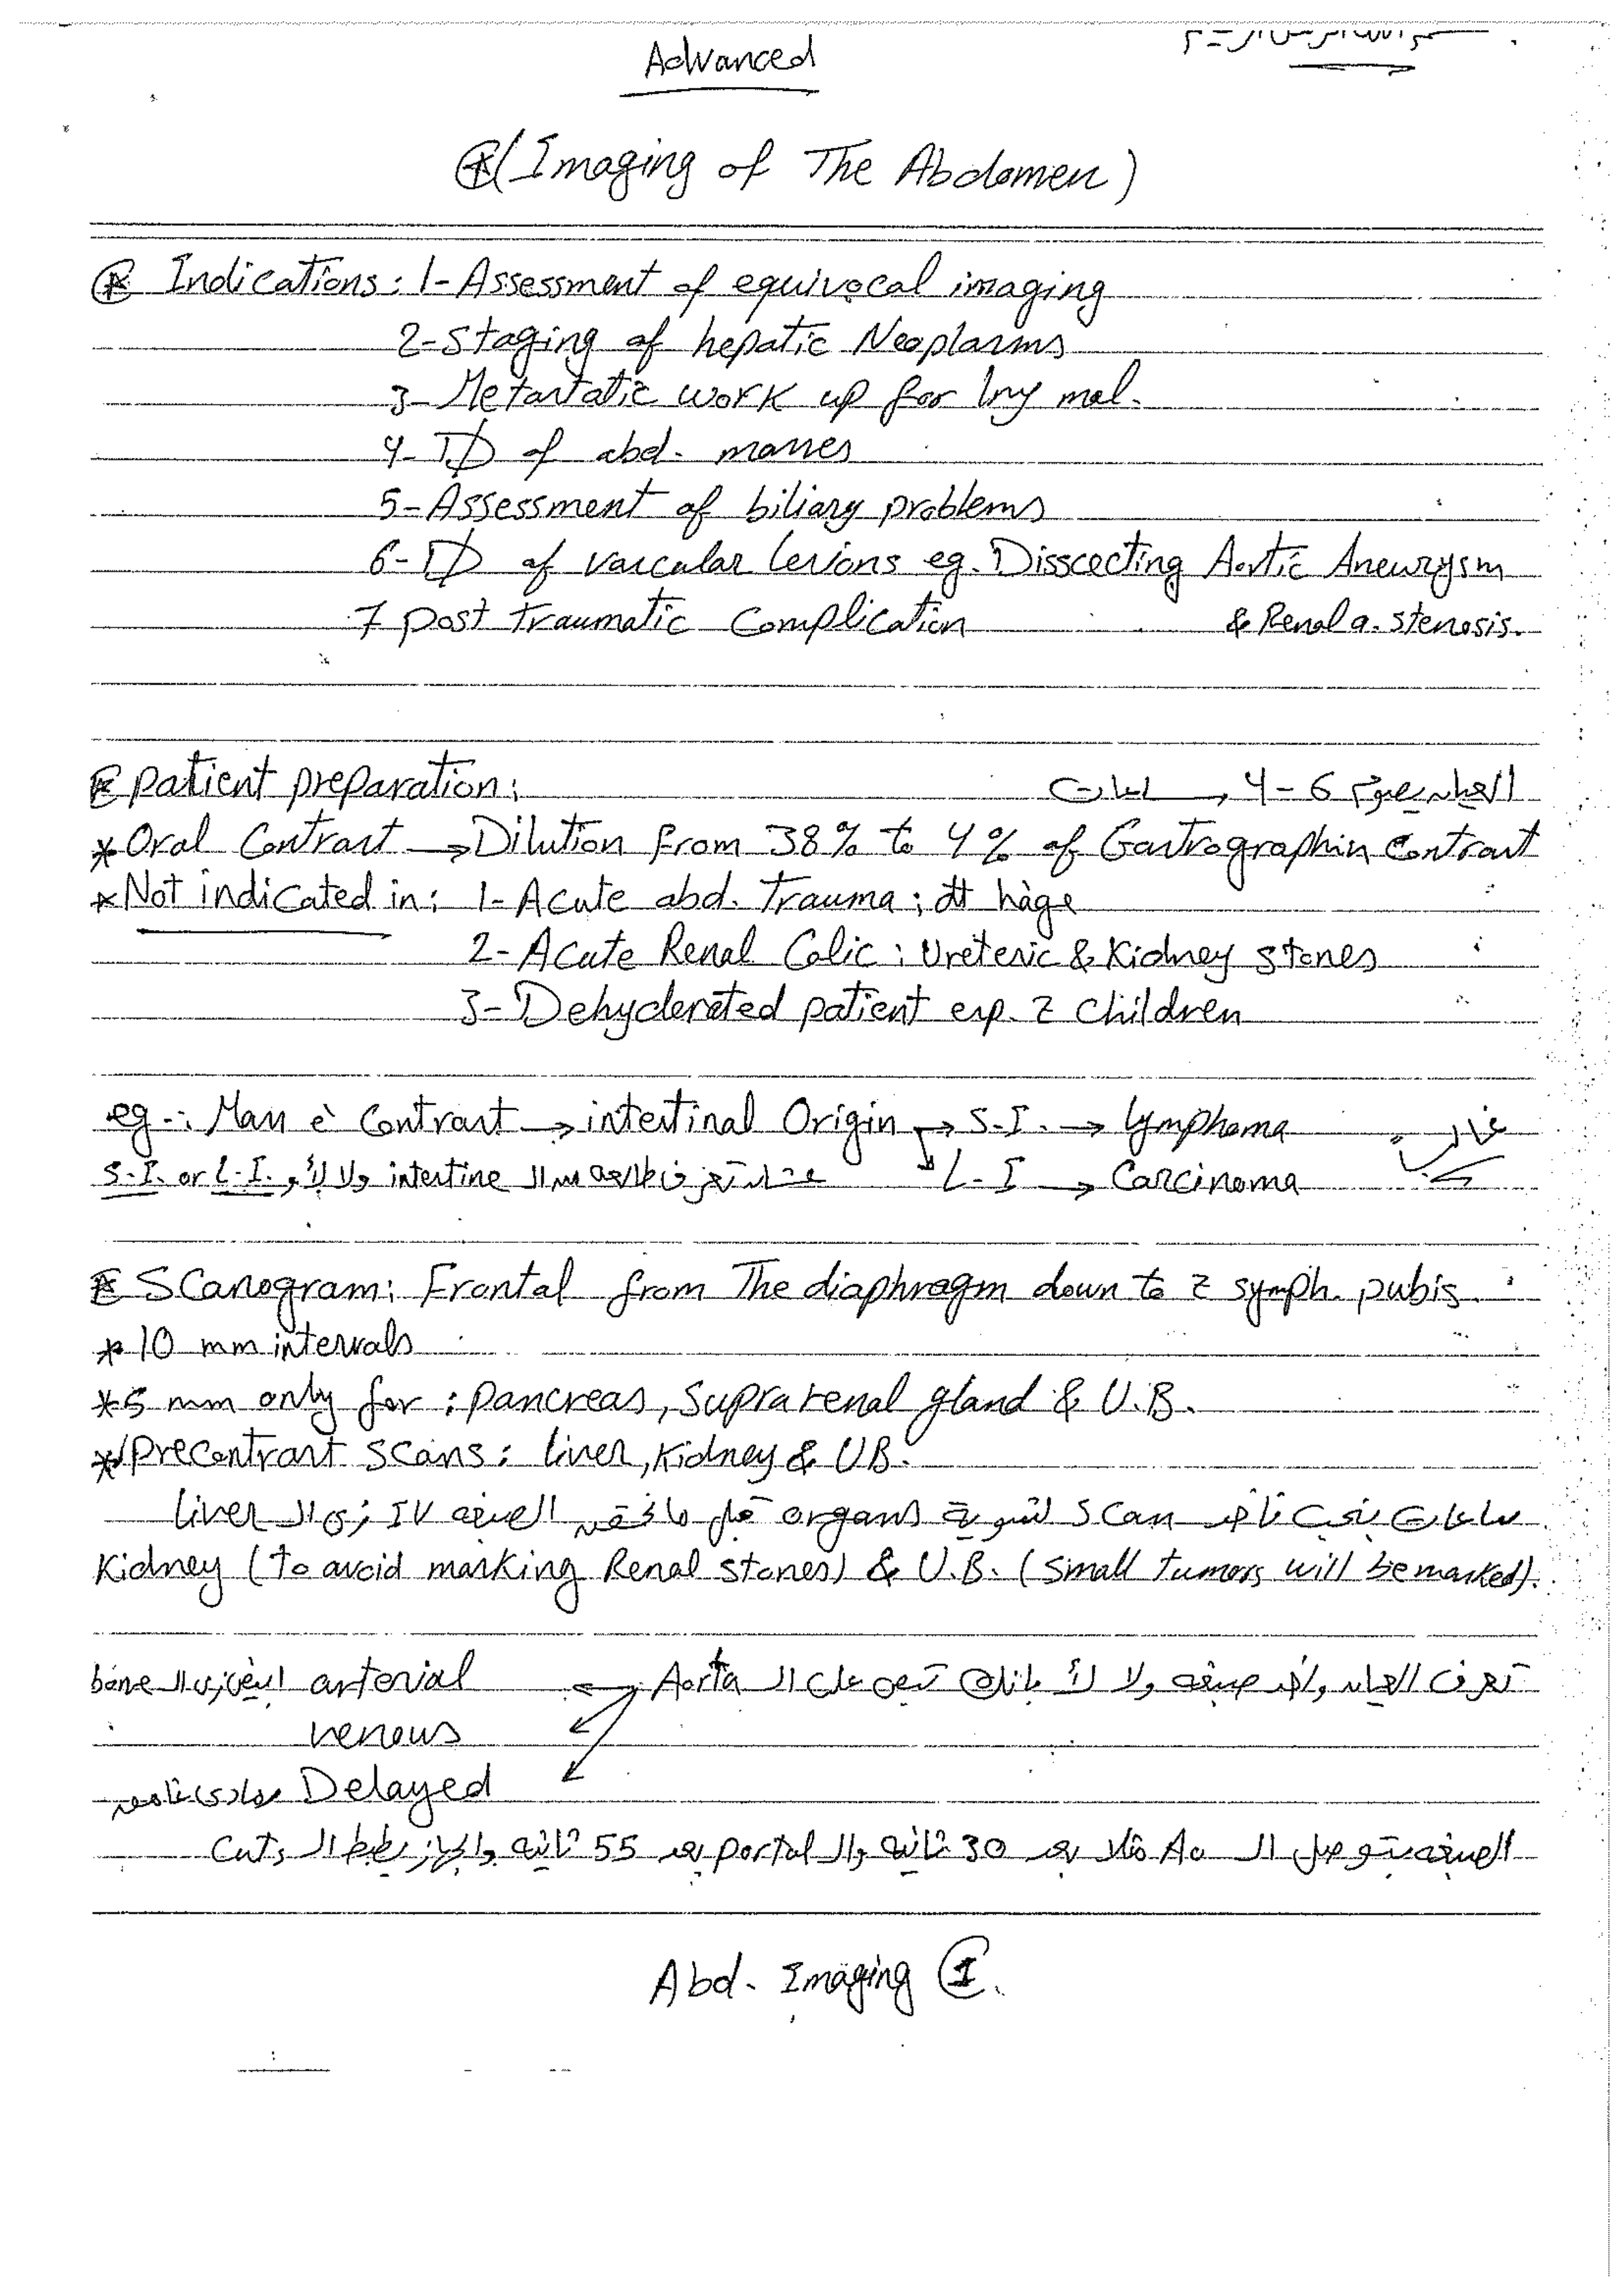 Advanced
(Imaging of The Abdomen)
Indications: 1- Assessment of equivocal imaging
2- Staging of hepatic Neoplasms
3- Metastatic work up for 1ry mal.
4- ID of abd. masses
5- Assessment of biliary problems
6- ID of vascular lesions eg. Disscecting Aortic Aneurysm
7 post traumatic Complication & Renal a. stenosis.
patient preparation: العيان يصوم 6 - 4 ساعات
* Oral Contrast → Dilution from 38% to 4% of Gastrographin Contrast
* Not indicated in: 1- Acute abd. Trauma; hàge
2- Acute Renal Colic: Ureteric & Kidney stones
3- Dehyderated patient esp. z children
eg-: Mass è Contrast → intestinal Origin → S.I. → lymphoma غالبا
→ L.I → Carcinoma
عشان تعرف طالعة من ال intestine ولا لأ، S.I. or L.I.
Scanogram: Frontal from The diaphragm down to z symph. pubis.
* 10 mm intervals
* 5 mm only for: pancreas, Suprarenal gland & U.B.
* Precontrast scans: liver, Kidney & UB.
ساعات بنحب ناخد scan لشوية organs قبل ما نحقن الصبغة IV زي ال liver
Kidney (to avoid masking Renal stones) & U.B. (small tumors will be masked).
تعرف العيان واخد صبغه ولا لأ بانك تبص على ال Aorta
arterial ابيض زي ال bone
venous
Delayed
الصبغه بتوصل ال Ao مثلا بعد 30 ثانيه وال portal بعد 55 ثانيه والجهاز يظبط ال cuts
Abd. Imaging 1.